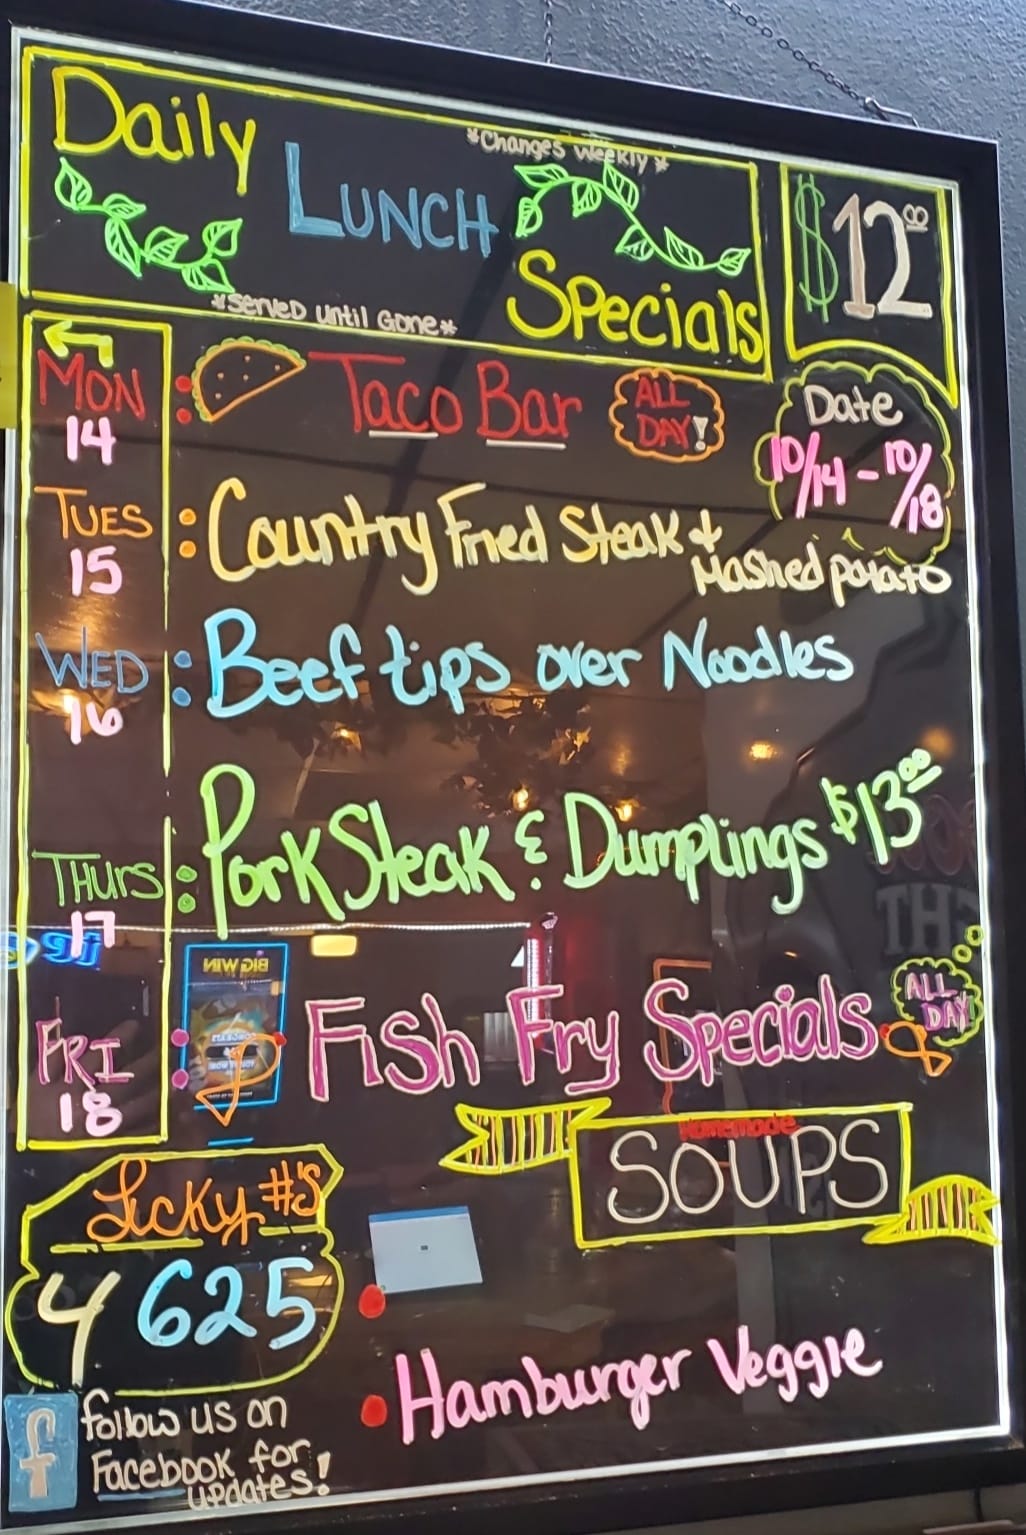 Daily
*Changes Weekly*
LUNCH
Specials
*Served until Gone*
$12
MON : Taco Bar ALL DAY!
14
Date
10/14 - 10/18
TUES : Country Fried Steak +
15
Mashed potato
WED : Beef tips over Noodles
16
THURS : Pork Steak & Dumplings $13.00
17
BIG WIN
FRI : Fish Fry Specials ALL DAY!
18
Homemade
SOUPS
Lucky #'s
4 625
Hamburger Veggie
f follow us on
Facebook for
updates!